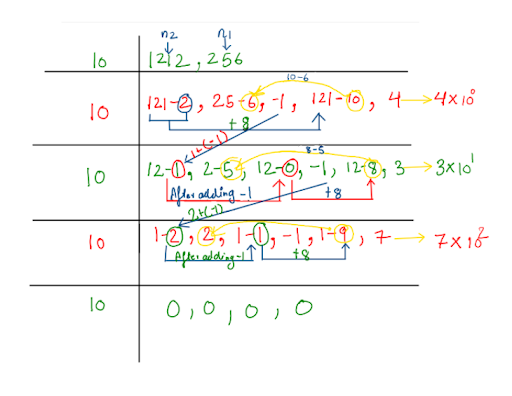 n2 n1
10 1212, 256
10-6
10 121-2, 25-6, -1, 121-10, 4 → 4×10⁰
+8
1+(-1)
8-5
10 12-1, 2-5, 12-0, -1, 12-8, 3 → 3×10¹
After adding -1 +8
2+(-1)
10 1-2, 2, 1-1, -1, 1-9, 7 → 7×10²
After adding -1 +8
10 0, 0, 0, 0